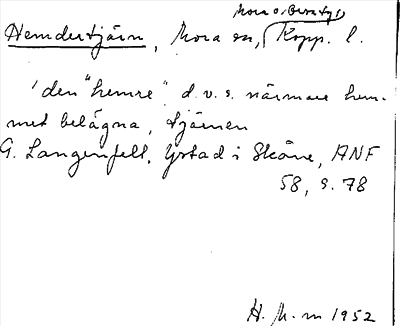 Mora o.
Hemdertjärn, Mora sn, Kopp. l.
'den "hemre" d.v.s. närmare hem-
met belägna, tjärnen
G. Langenfelt, Ystad i Skåne, ANF
58, s. 78
H. M-m 1952